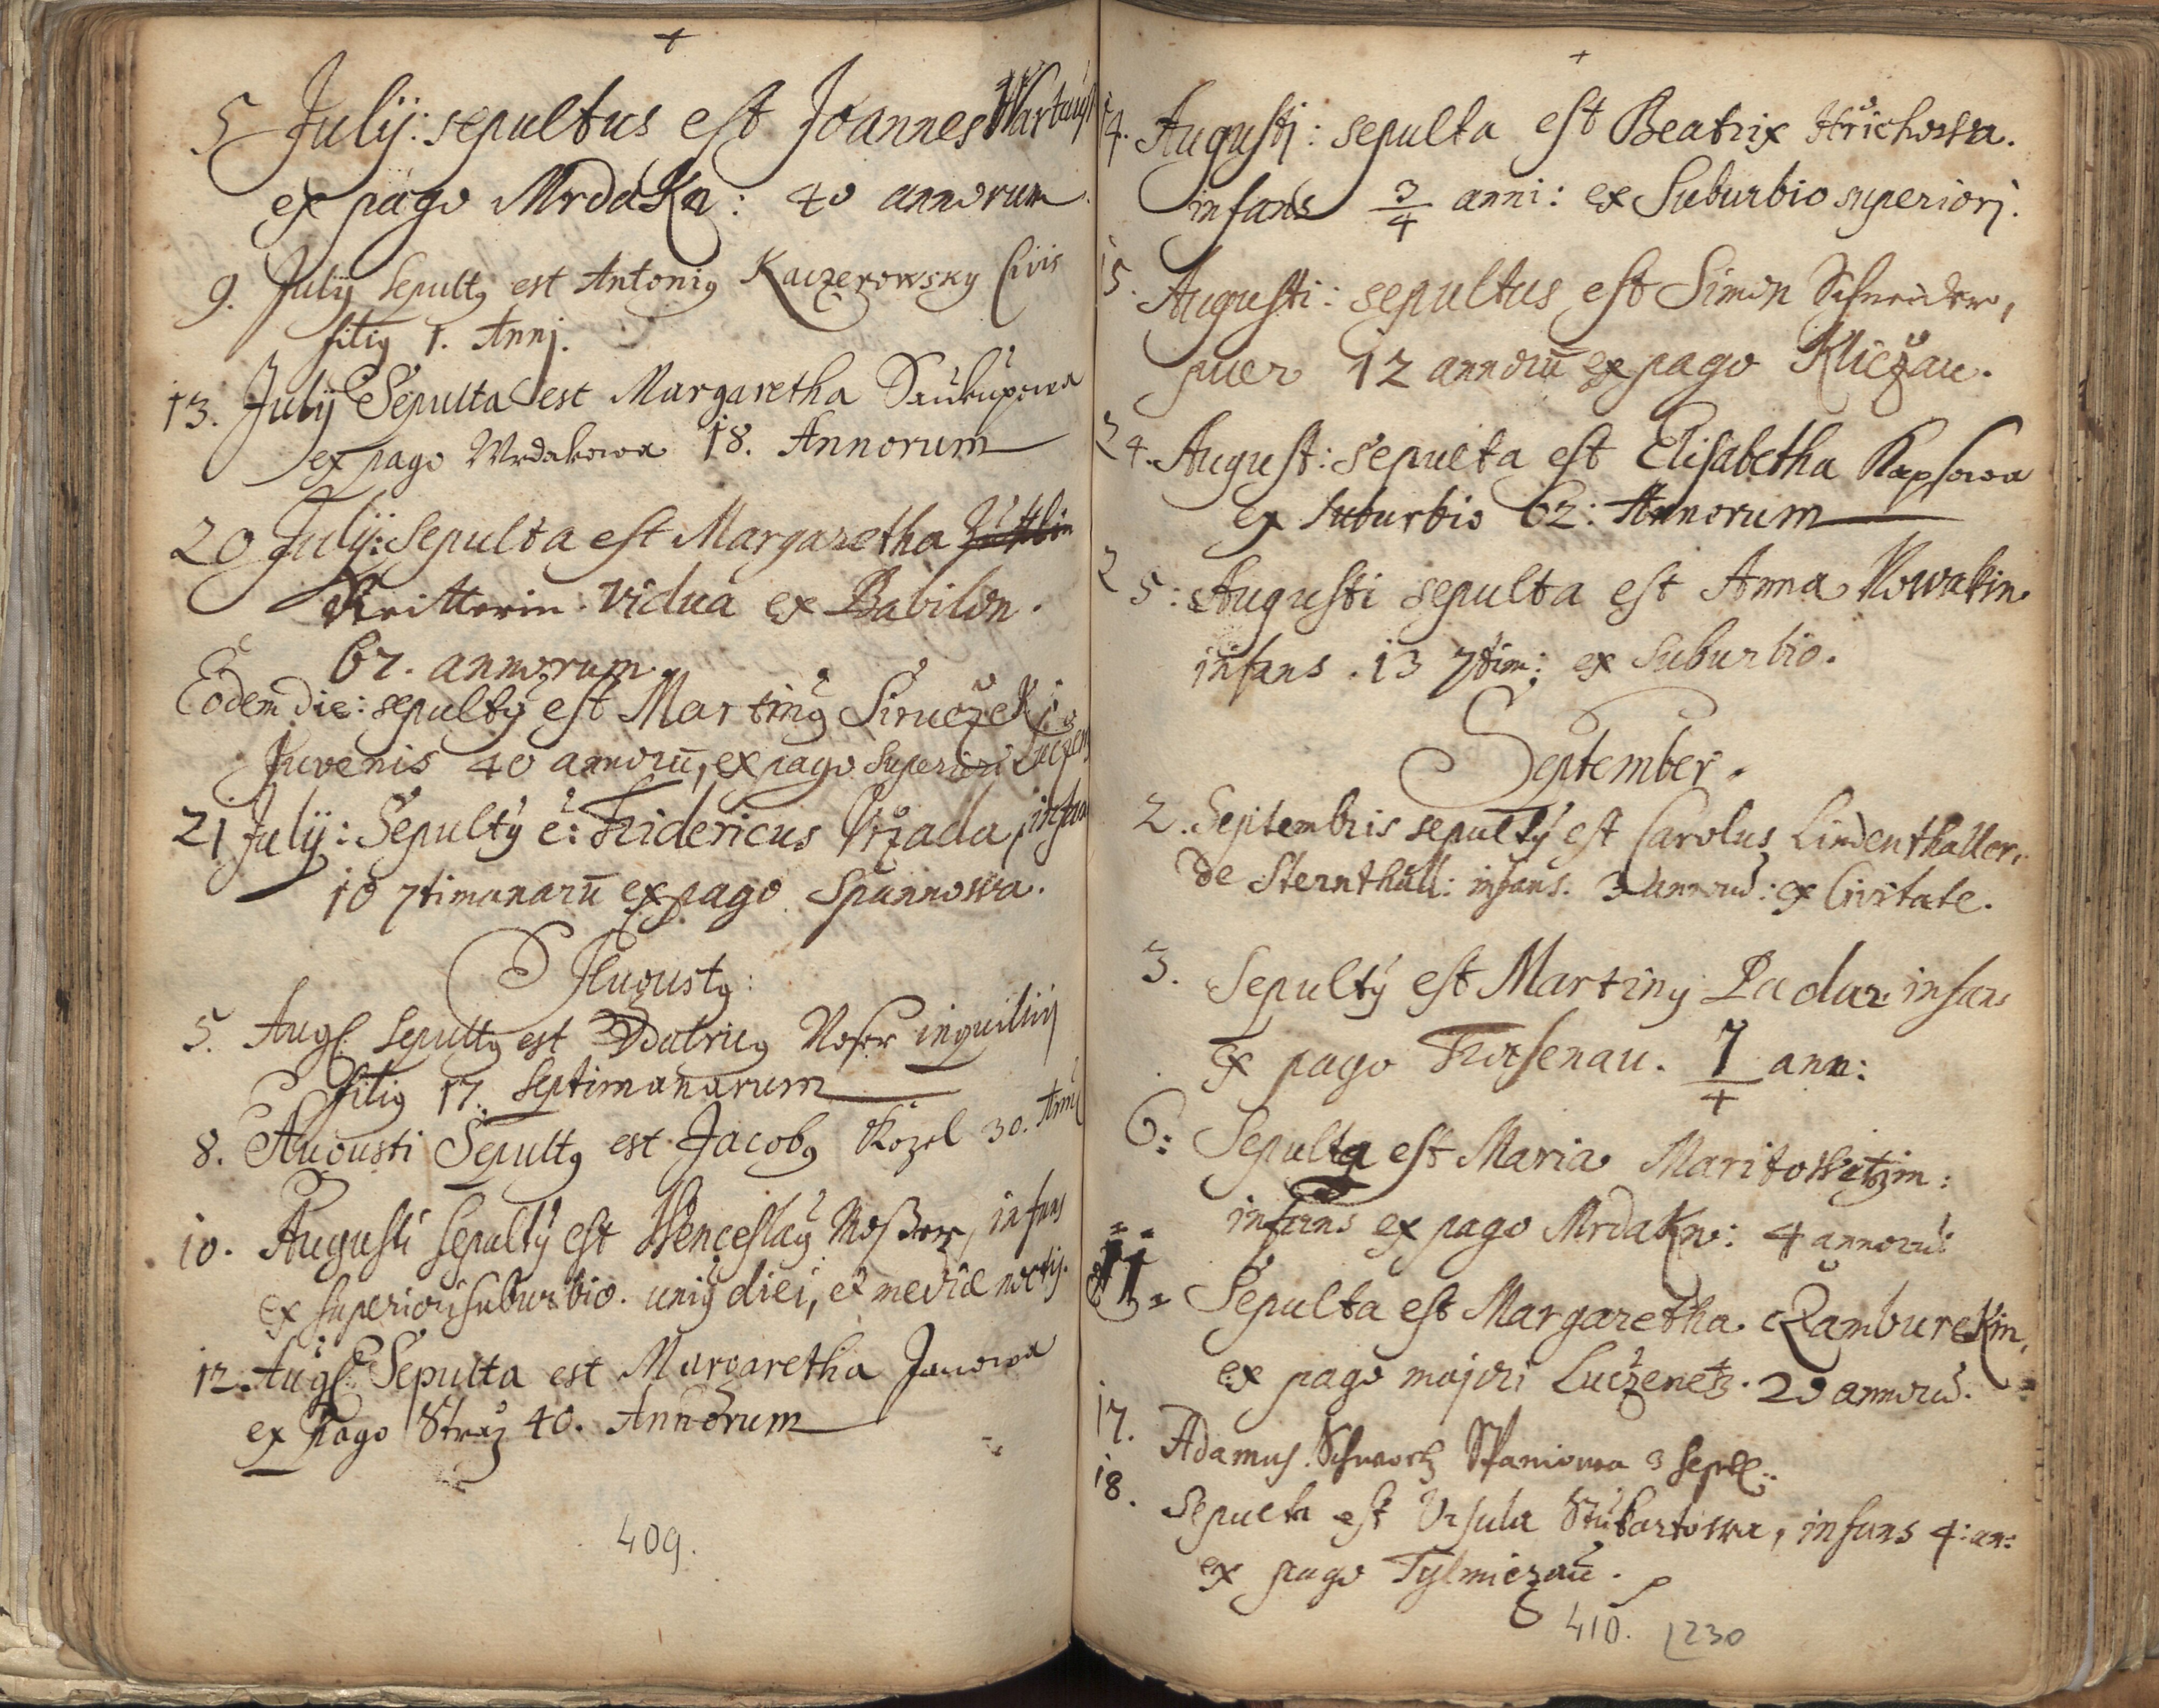 5 Julij: sepultus est Joannes Wartaus
ex pago Mrdakn: 40 annorum.
9. Julij sepultq est Antoniq Kaczerowsky Civis
filiq 1. Annj.
13. Julij Sepulta est Margaretha Saukupowa
ex pago Mrdakowa 18. Annorum
20 Julij: sepulta est Margaretha
Reitterin. vidua ex Babilon.
62. annorum.
Eodem die: sepultq est Martinq Siruczek
Juvenis 40 annorū, ex pago superiori
21 Julij: Sepultq ē: Fridericus Wrzada, infan
10 7timanarū ex pago Spannowa.
Augustq:
5. Augs. sepultq est Vdalricq Moser inquilinj
filiq 17. Septimanarum
8. Augusti Sepultq est Jacobq Kozel 30. Annū
10. Augusti sepultq est Wenceslaq Moßer, infans
ex superiori suburbio. uniq diei, et mediæ noctis.
12. Augs. Sepulta est Margaretha Janowa
ex Pago Straz 40. Annorum
409.
14. Augusti: sepulta est Beatrix Hrichowa.
infans 3/4 anni: ex Suburbio superiorj.
15. Augusti: sepultus est Simon Schneider,
puer 12 annorū ex pago Kliczau.
24. August: sepulta est Elisabetha Kapsowa
ex suburbio 62: Annorum
25: Augusti sepulta est Anna Nowakin
infans. 13 7tim: ex suburbio.
September.
2. Septembris sepultq est Carolus Lindenthaller,
de Sternthall: infans. 3 annorū: ex Civitate.
3. Sepultq est Martinq Padur infans
ex pago Trasenau. 7/4 ann:
6: Sepulta est Maria Maritowetzin:
infans ex pago Mrdakn: 4 annorū:
11 Sepulta est Margaretha Ramburekin,
ex pago majori Luczenetz. 20 annorū.
17. Adamus Schwartz Spaniowa 3 sept:
18. Sepulta est Vrsula Stukartowa, infans 4: an:
ex pago Tylmiczau.
410. 1230